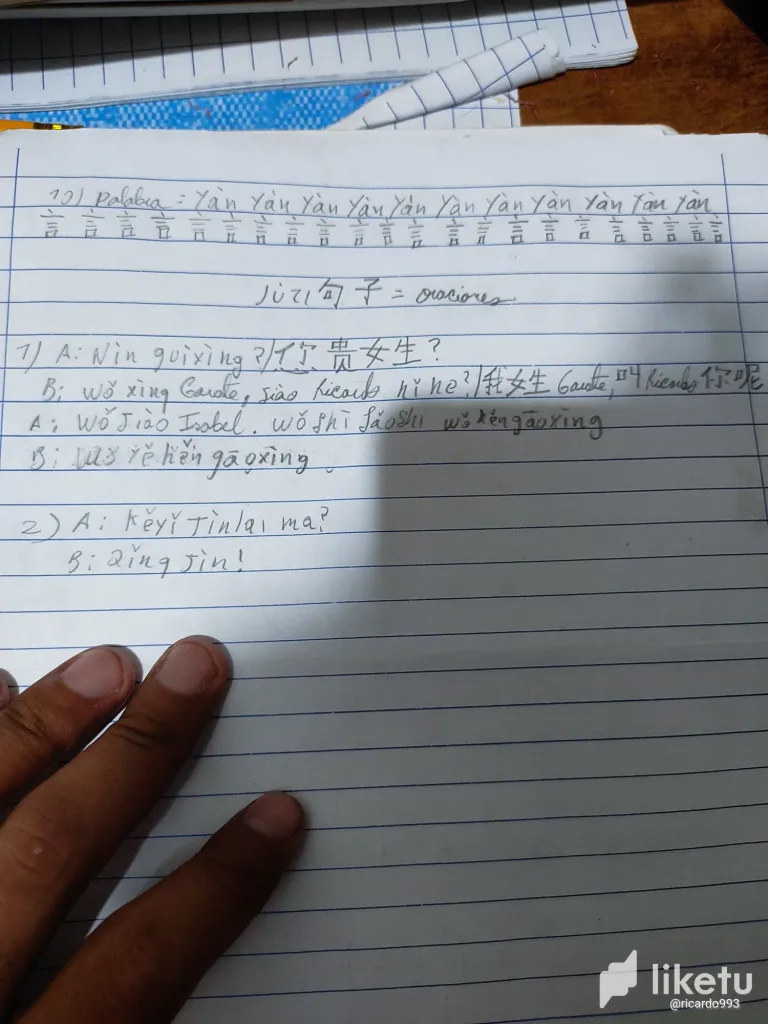 10) Palabra = Yàn Yàn Yàn Yàn Yàn Yàn Yàn Yàn Yàn Yàn Yàn
言 言 言 言 言 言 言 言 言 言 言 言 言 言 言 言 言 言 言 言
Jùzi 句子 = oraciones
1) A: Nín guìxìng?/您贵女生?
B: Wǒ xìng Garate, Jiào Ricardo nǐ ne?/我女生 Garate, 叫 Ricardo 你呢
A: Wǒ Jiào Isabel. Wǒ Shì lǎoshi wǒ hěn gāoxìng
B: Wǒ Yě hěn gāoxìng
2) A: Kěyǐ Jìnlai ma?
B: Qǐng Jìn!
liketu
@ricardo993